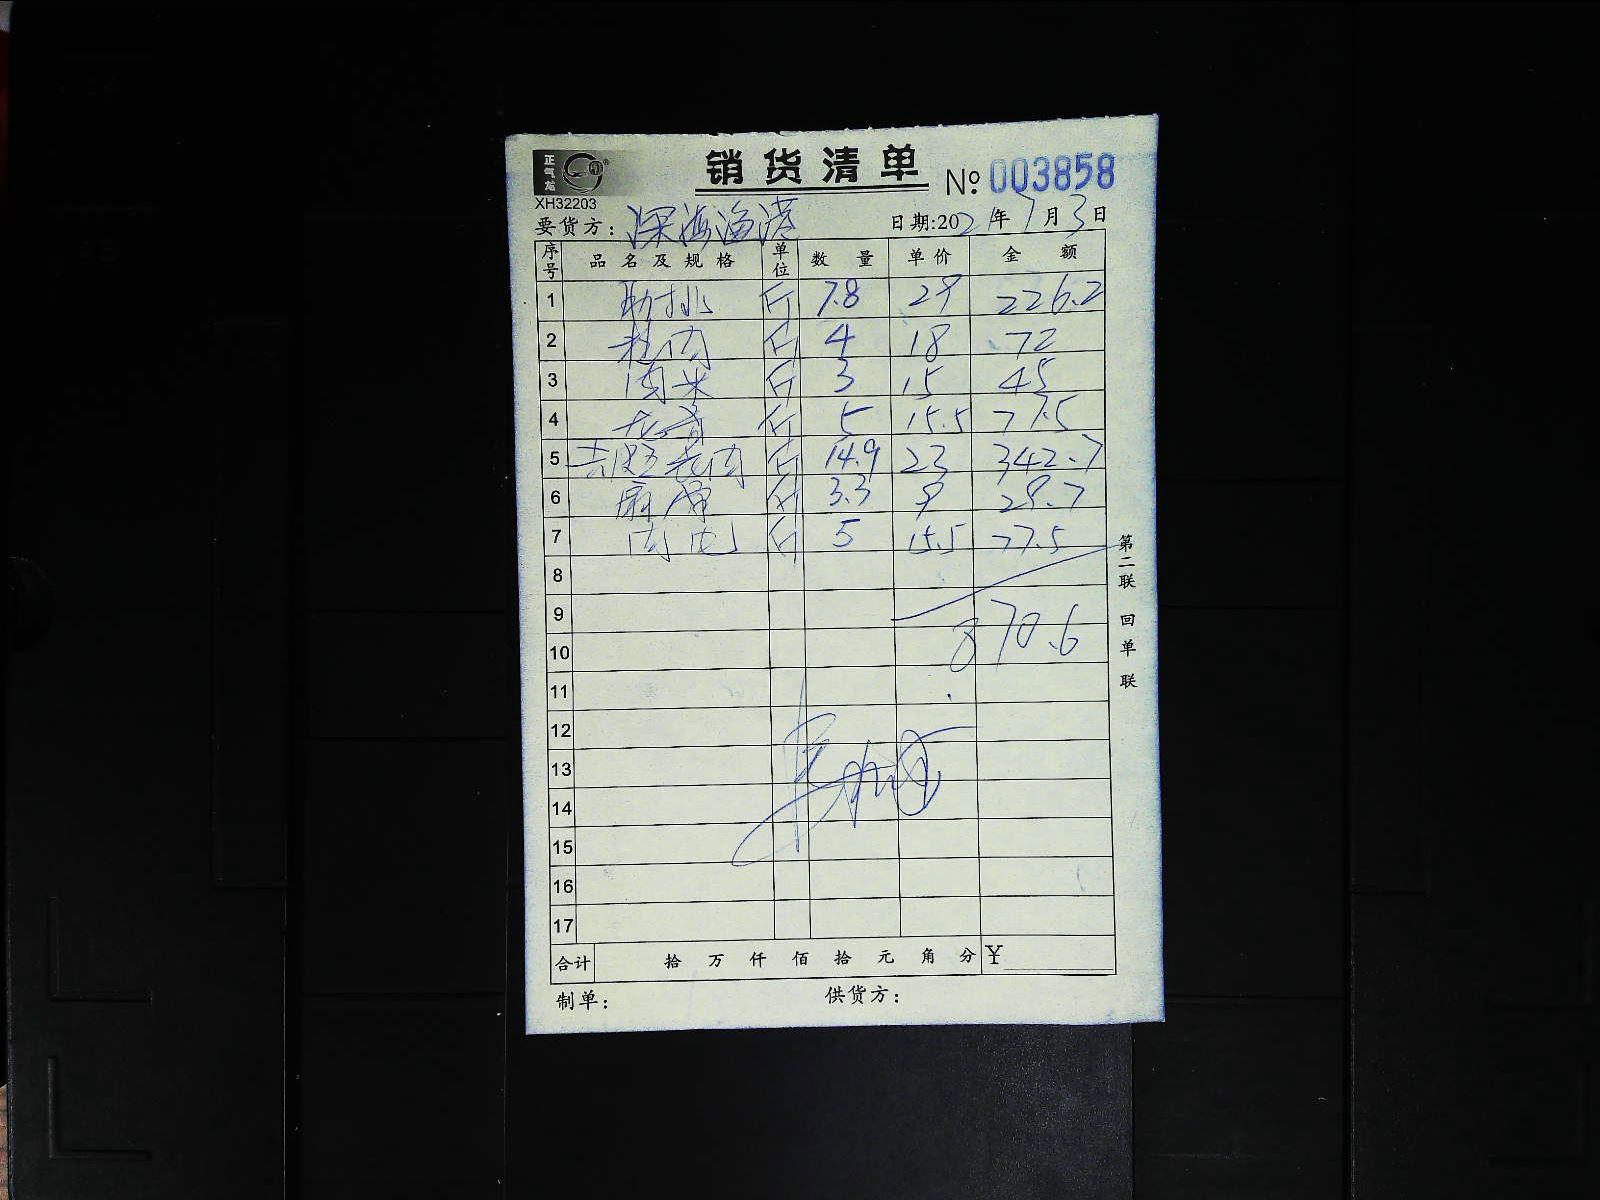 正气龙
销货清单 № 003858
XH32203
要货方：深海渔港 日期:2021年7月3日
序号 品名及规格 单位 数量 单价 金额
1 肋排 斤 7.8 29 226.2
2 斤 4 18 72
3 肉米 斤 3 15 45
4 龙骨 斤 5 15.5 77.5
5 去皮五花肉 斤 14.9 23 342.7
6 斤 3.3 9 29.7
7 斤 5 15.5 77.5
8
9
870.6
10
11
12
13
14
15
16
17
合计 拾 万 仟 佰 拾 元 角 分 ¥
制单： 供货方：
第二联 回单联